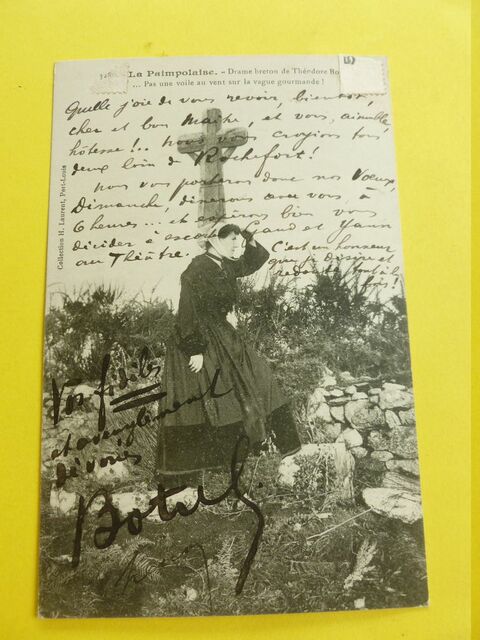 La Paimpolaise. - Drame breton de Théodore Bo
... Pas une voile au vent sur la vague gourmande !
Quelle joie de vous revoir, bientôt,
cher et bon Maître, et vous, aimable
hôtesse !.. nous vous croyions tous
deux loin de Rochefort !
nous vous porterons donc nos Vœux,
Dimanche, dînerons avec vous, à
6 heures... et espérons bien vous
décider à Gaud et Yann
au Théâtre. C'est un honneur
que je désire et
redoute tout à la
fois !
Collection H. Laurent, Port-Louis
Vos fidèles
et aveuglément
dévoués
Botrel